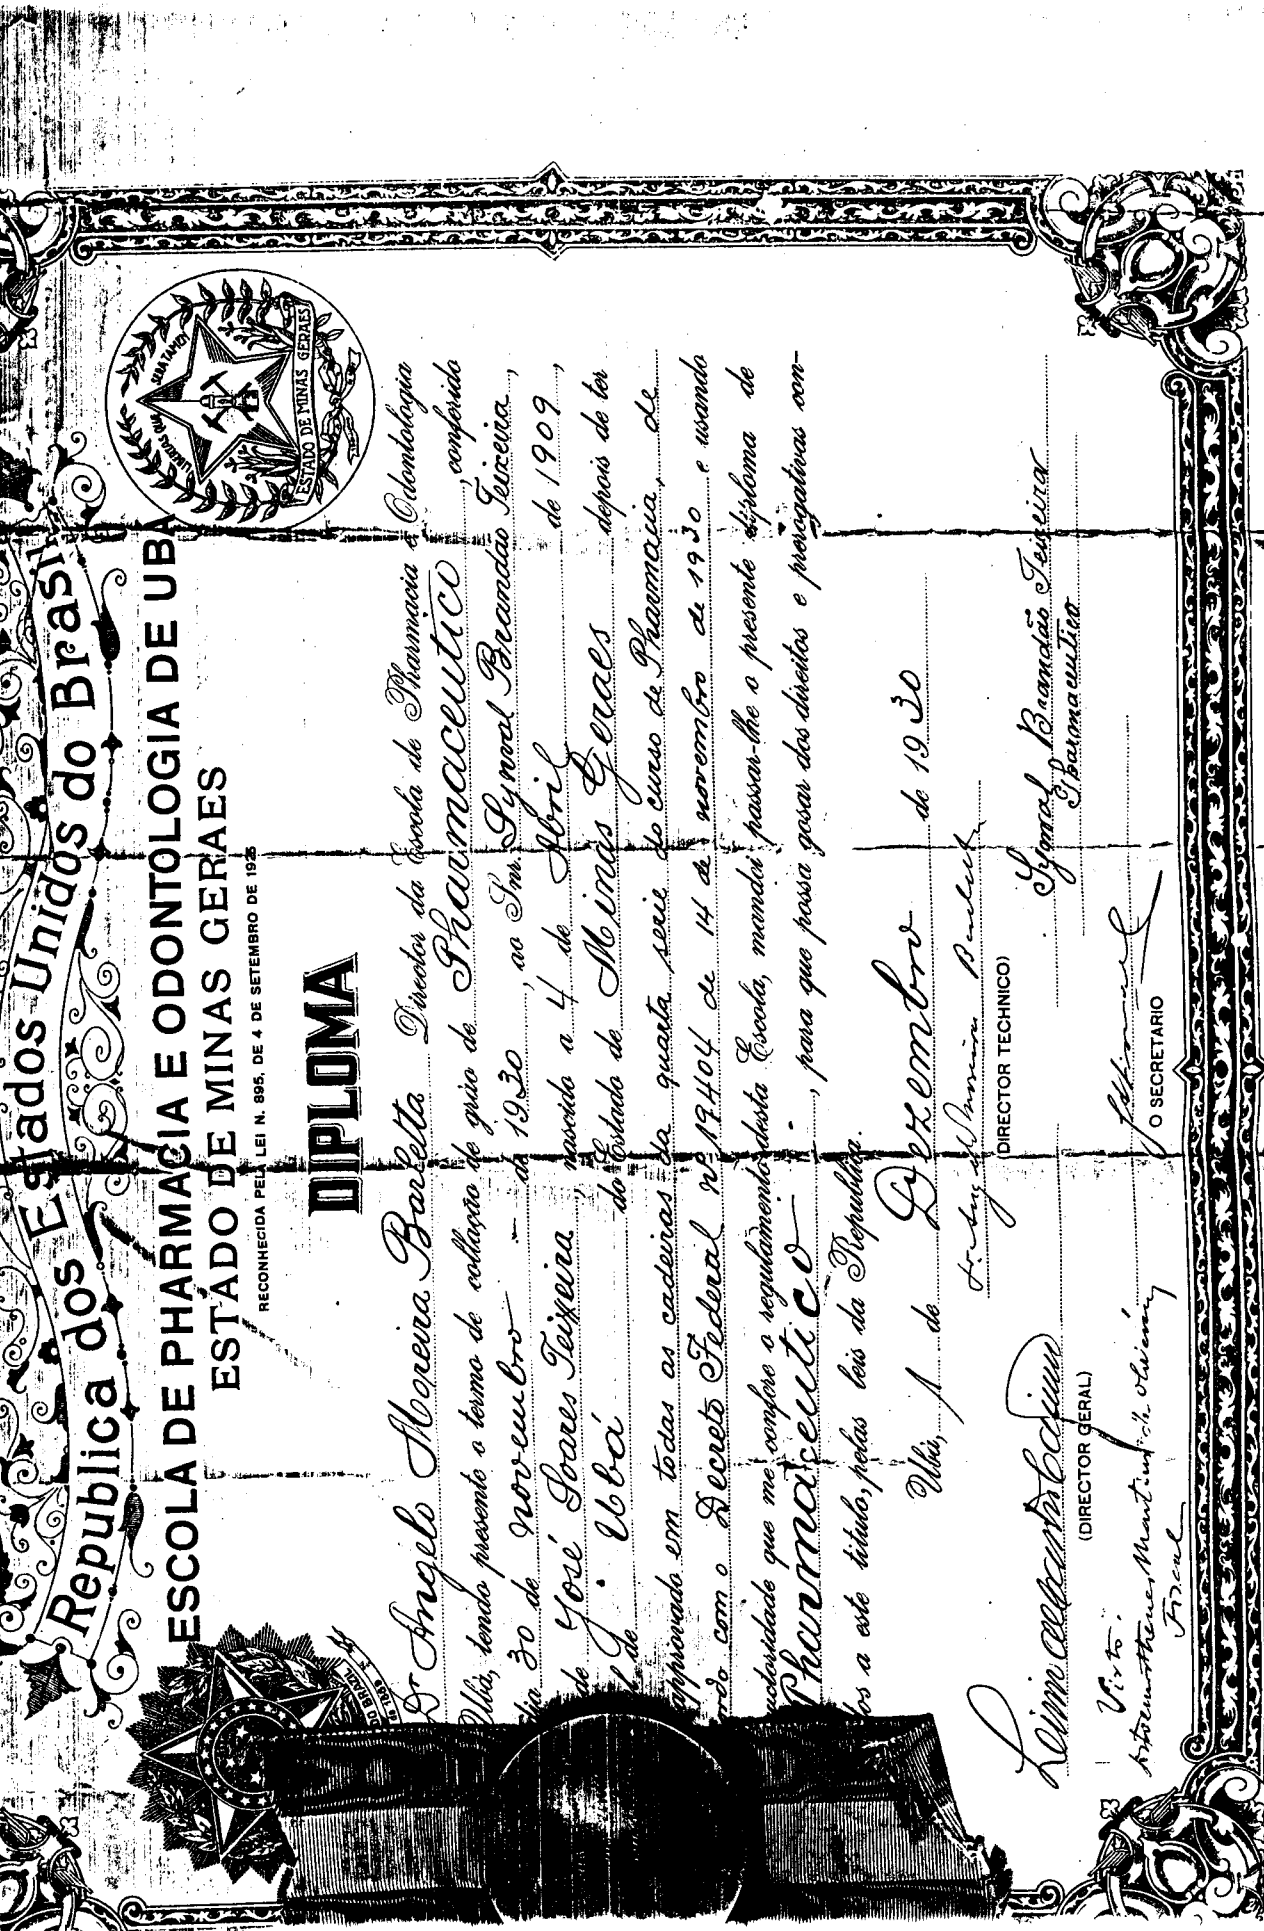 Republica dos Estados Unidos do Brasil
ESCOLA DE PHARMACIA E ODONTOLOGIA DE UBA
ESTADO DE MINAS GERAES
RECONHECIDA PELA LEI N. 895, DE 4 DE SETEMBRO DE 1925
LIBERTAS QUÆ SERA TAMEN
ESTADO DE MINAS GERAES
DIPLOMA
Dr Angelo Moreira Barletta Director da Escola de Pharmacia e Odontologia
Ubá, tendo presente o termo de collação de gráo de Pharmaceutico, conferido
dia 30 de novembro de 1930, ao Snr. Synval Brandão Teixeira,
de José Soares Teixeira, nascido a 4 de Abril de 1909,
de Ubá do Estado de Minas Geraes depois de ter
approvado em todas as cadeiras da quarta serie do curso de Pharmacia, de
ordo com o Decreto Federal nº 19404 de 14 de novembro de 1930 e usando
autoridade que me confere o regulamento desta Escola, mandei passar-lhe o presente diploma de
Pharmaceutico, para que possa gosar dos direitos e prerogativas con-
dos a este titulo, pelas leis da Republica.
Ubá, 1 de Dezembro de 1930
(DIRECTOR TECHNICO)
Synval Brandão Teixeira
Pharmaceutico
(DIRECTOR GERAL)
O SECRETARIO
Visto.
Fiscal